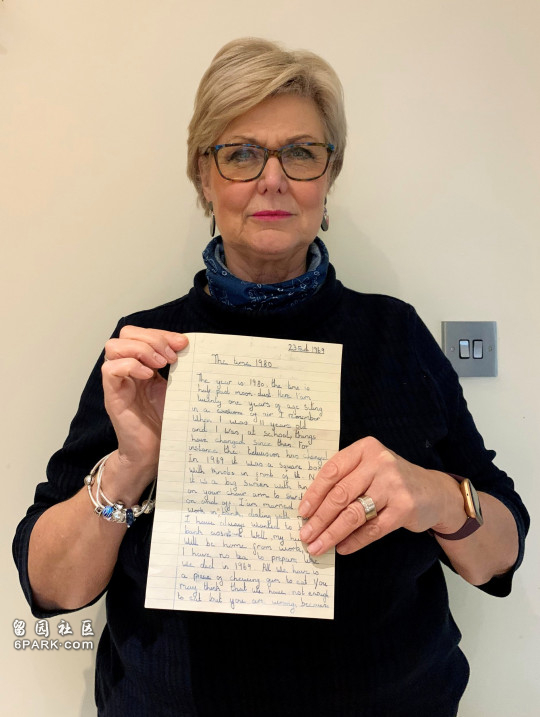 23rd 1969
The time 1980
The year is 1980, the time is
half past here I am
twenty one years of age siting
in a of air I remember
when I was 11 years old
and I was at school, things
have changed since then. For
instance the television has changed
In 1969 it was a square box
with in front of it
it is a big screen with
on your chair arms to
I am married
work in
I have always wanted to
bank While my
will be home from work,
I have no tea to prepare like
we did in 1969. All we have is
a piece of chewing gum to eat. You
may think that we have not enough
to eat but you are wrong because
留园社区
6PARK.com